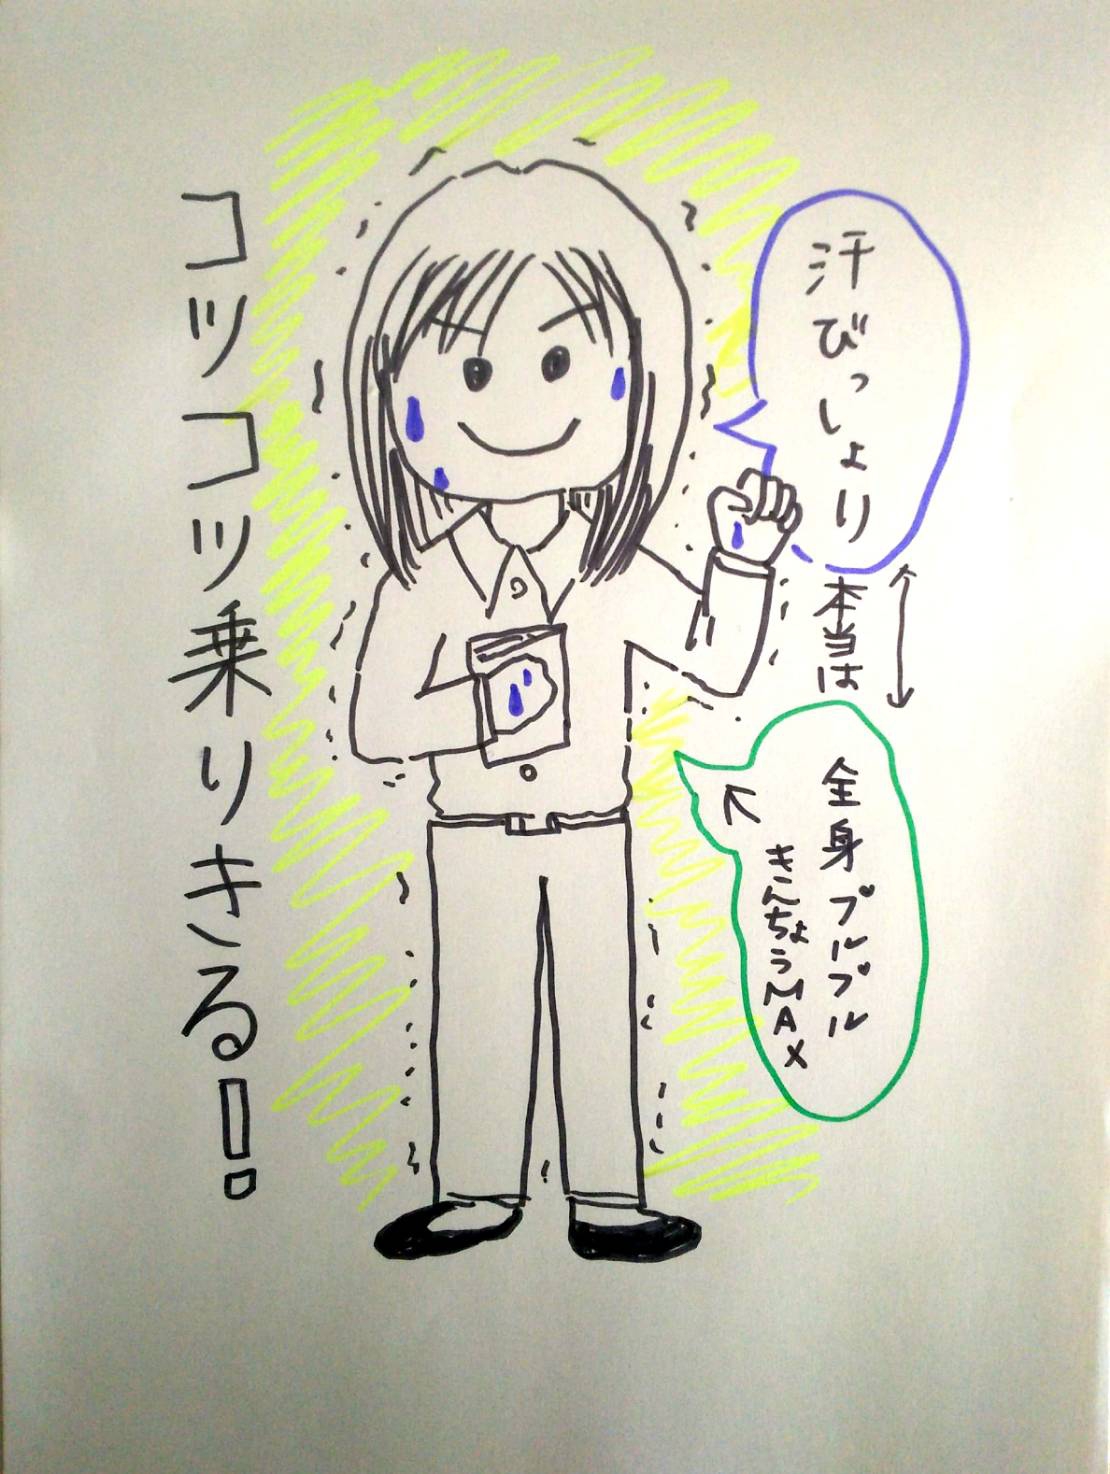 汗びっしょり
本当は
全身プルプル
きんちょうMAX
コツコツ乗りきる!